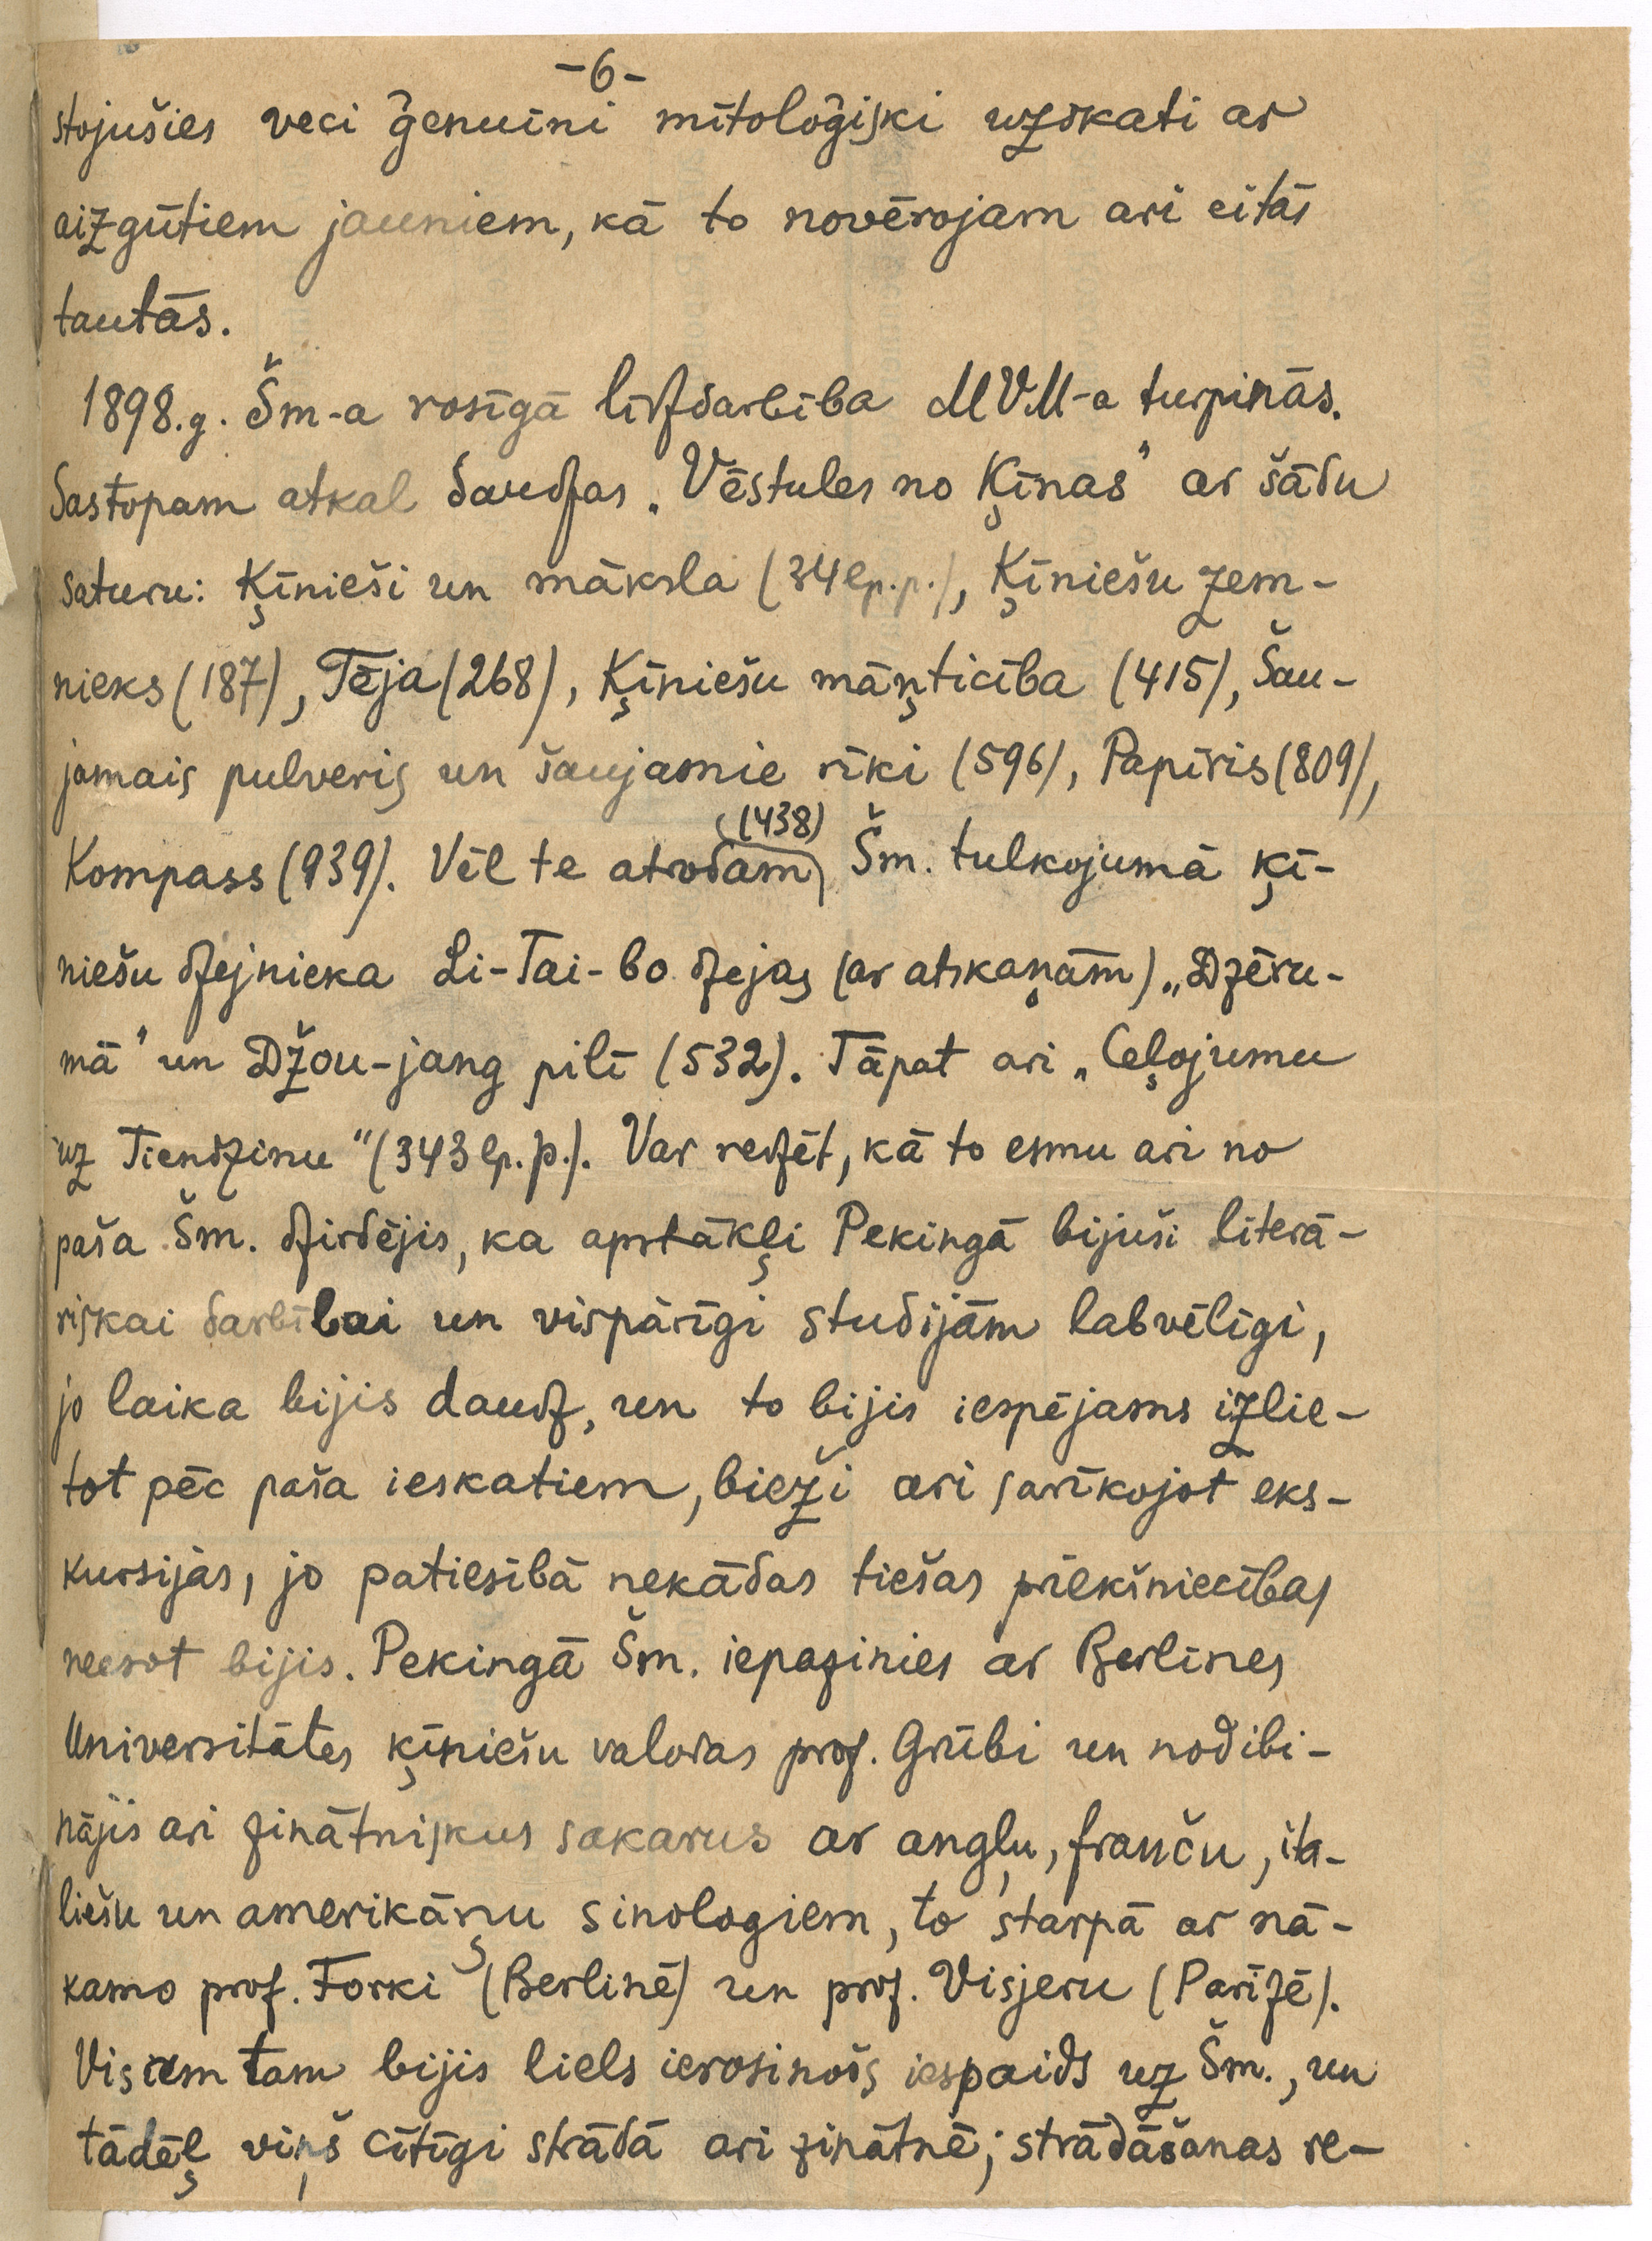 -6-
stojušies veci ģenuini mītoloģiski uzskati ar
aizgūtiem jauniem, kā to novērojam ari citās
tautās.
1898.g. Šm-a rosīgā līdzdarbība MVM-a turpinās.
Sastopam atkal daudzas „Vēstules no Ķīnas" ar šādu
saturu: Ķīnieši un māksla (34 lp.p.), Ķīniešu zem-
nieks (187), Tēja (268), Ķīniešu māņticība (415), Šau-
jamais pulveris un šaujamie rīki (596), Papīris (809),
Kompass (939). Vēl te atrodam (438) Šm. tulkojumā ķī-
niešu dzejnieka Li-Tai-bo dzejas (ar atskaņām) „Dzēru-
mā" un Džou-jang pilī (532). Tāpat ari „Ceļojumu
uz Tiendzinu" (343 lp.p.). Var redzēt, kā to esmu ari no
paša Šm. dzirdējis, ka apstākļi Pekingā bijuši literā-
riskai darbībai un vispārīgi studijām labvēlīgi,
jo laika bijis daudz, un to bijis iespējams izlie-
tot pēc paša ieskatiem, bieži ari sarīkojot eks-
kursijas, jo patiesībā nekādas tiešas priekšniecības
neesot bijis. Pekingā Šm. iepazinies ar Berlīnes
Universitātes ķīniešu valodas prof. Grūbi un nodibi-
nājis ari zinātniskus sakarus ar angļu, franču, ita-
liešu un amerikāņu sinologiem, to starpā ar nā-
kamo prof. Forki (Berlinē) un prof. Visjeru (Parīzē).
Visiem tam bijis liels ierosinošs iespaids uz Šm., un
tādēļ viņš cītīgi strādā ari zinātnē; strādāšanas re-